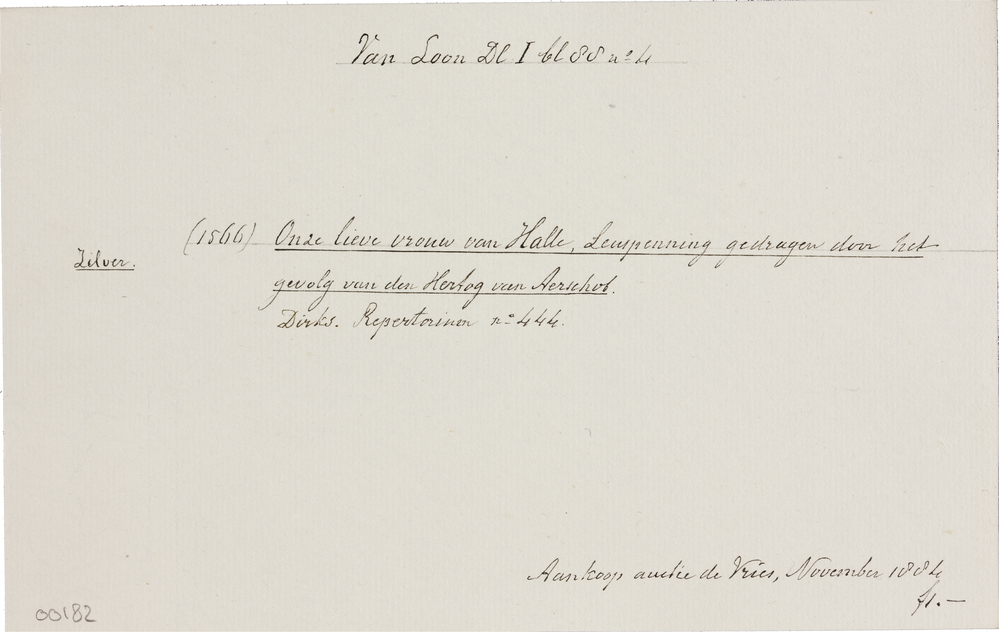 Van Loon Dl I bl 88 no 4
(1566) Onze lieve vrouw van Halle, Leuspenning gedragen door het
Zilver.
gevolg van den Hertog van Aerschot.
Dirks. Repertorium no 444.
Aankoop auctie de Vries, November 1884
f1.—
00182